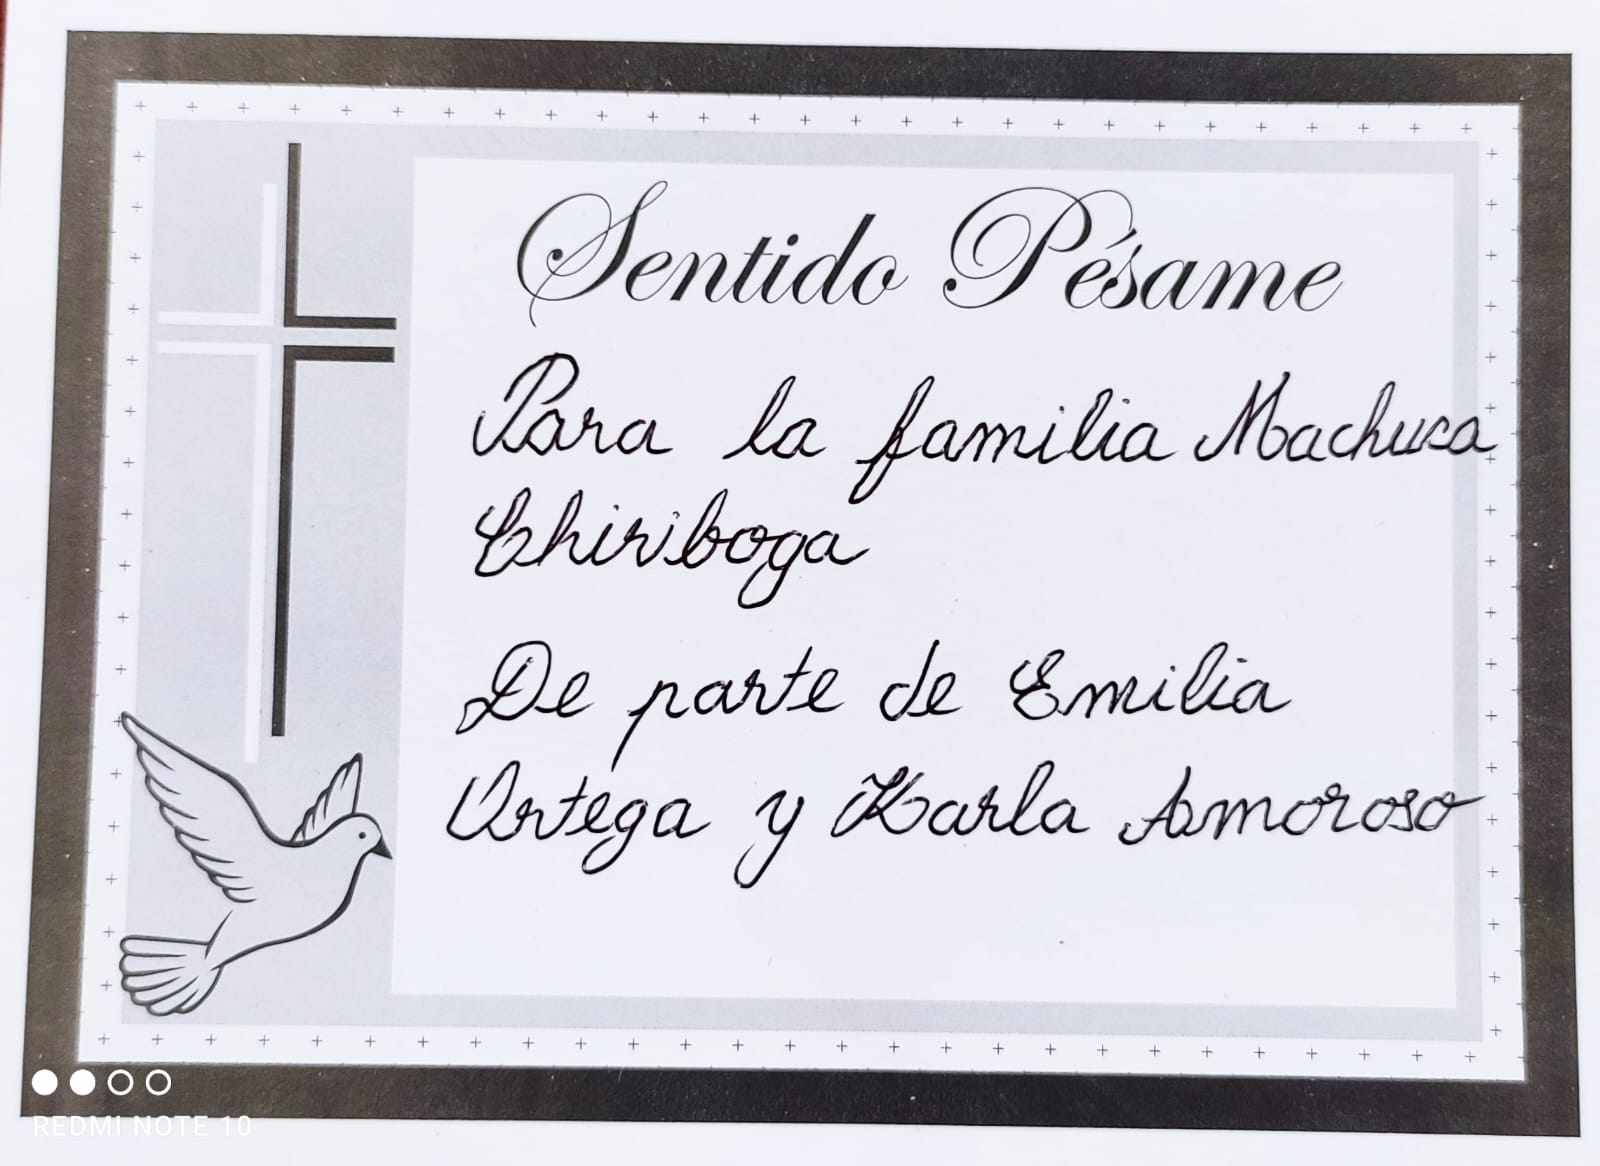 Sentido Pésame
Para la familia Machuca
Chiriboga
De parte de Emilia
Ortega y Karla Amoroso
REDMI NOTE 10